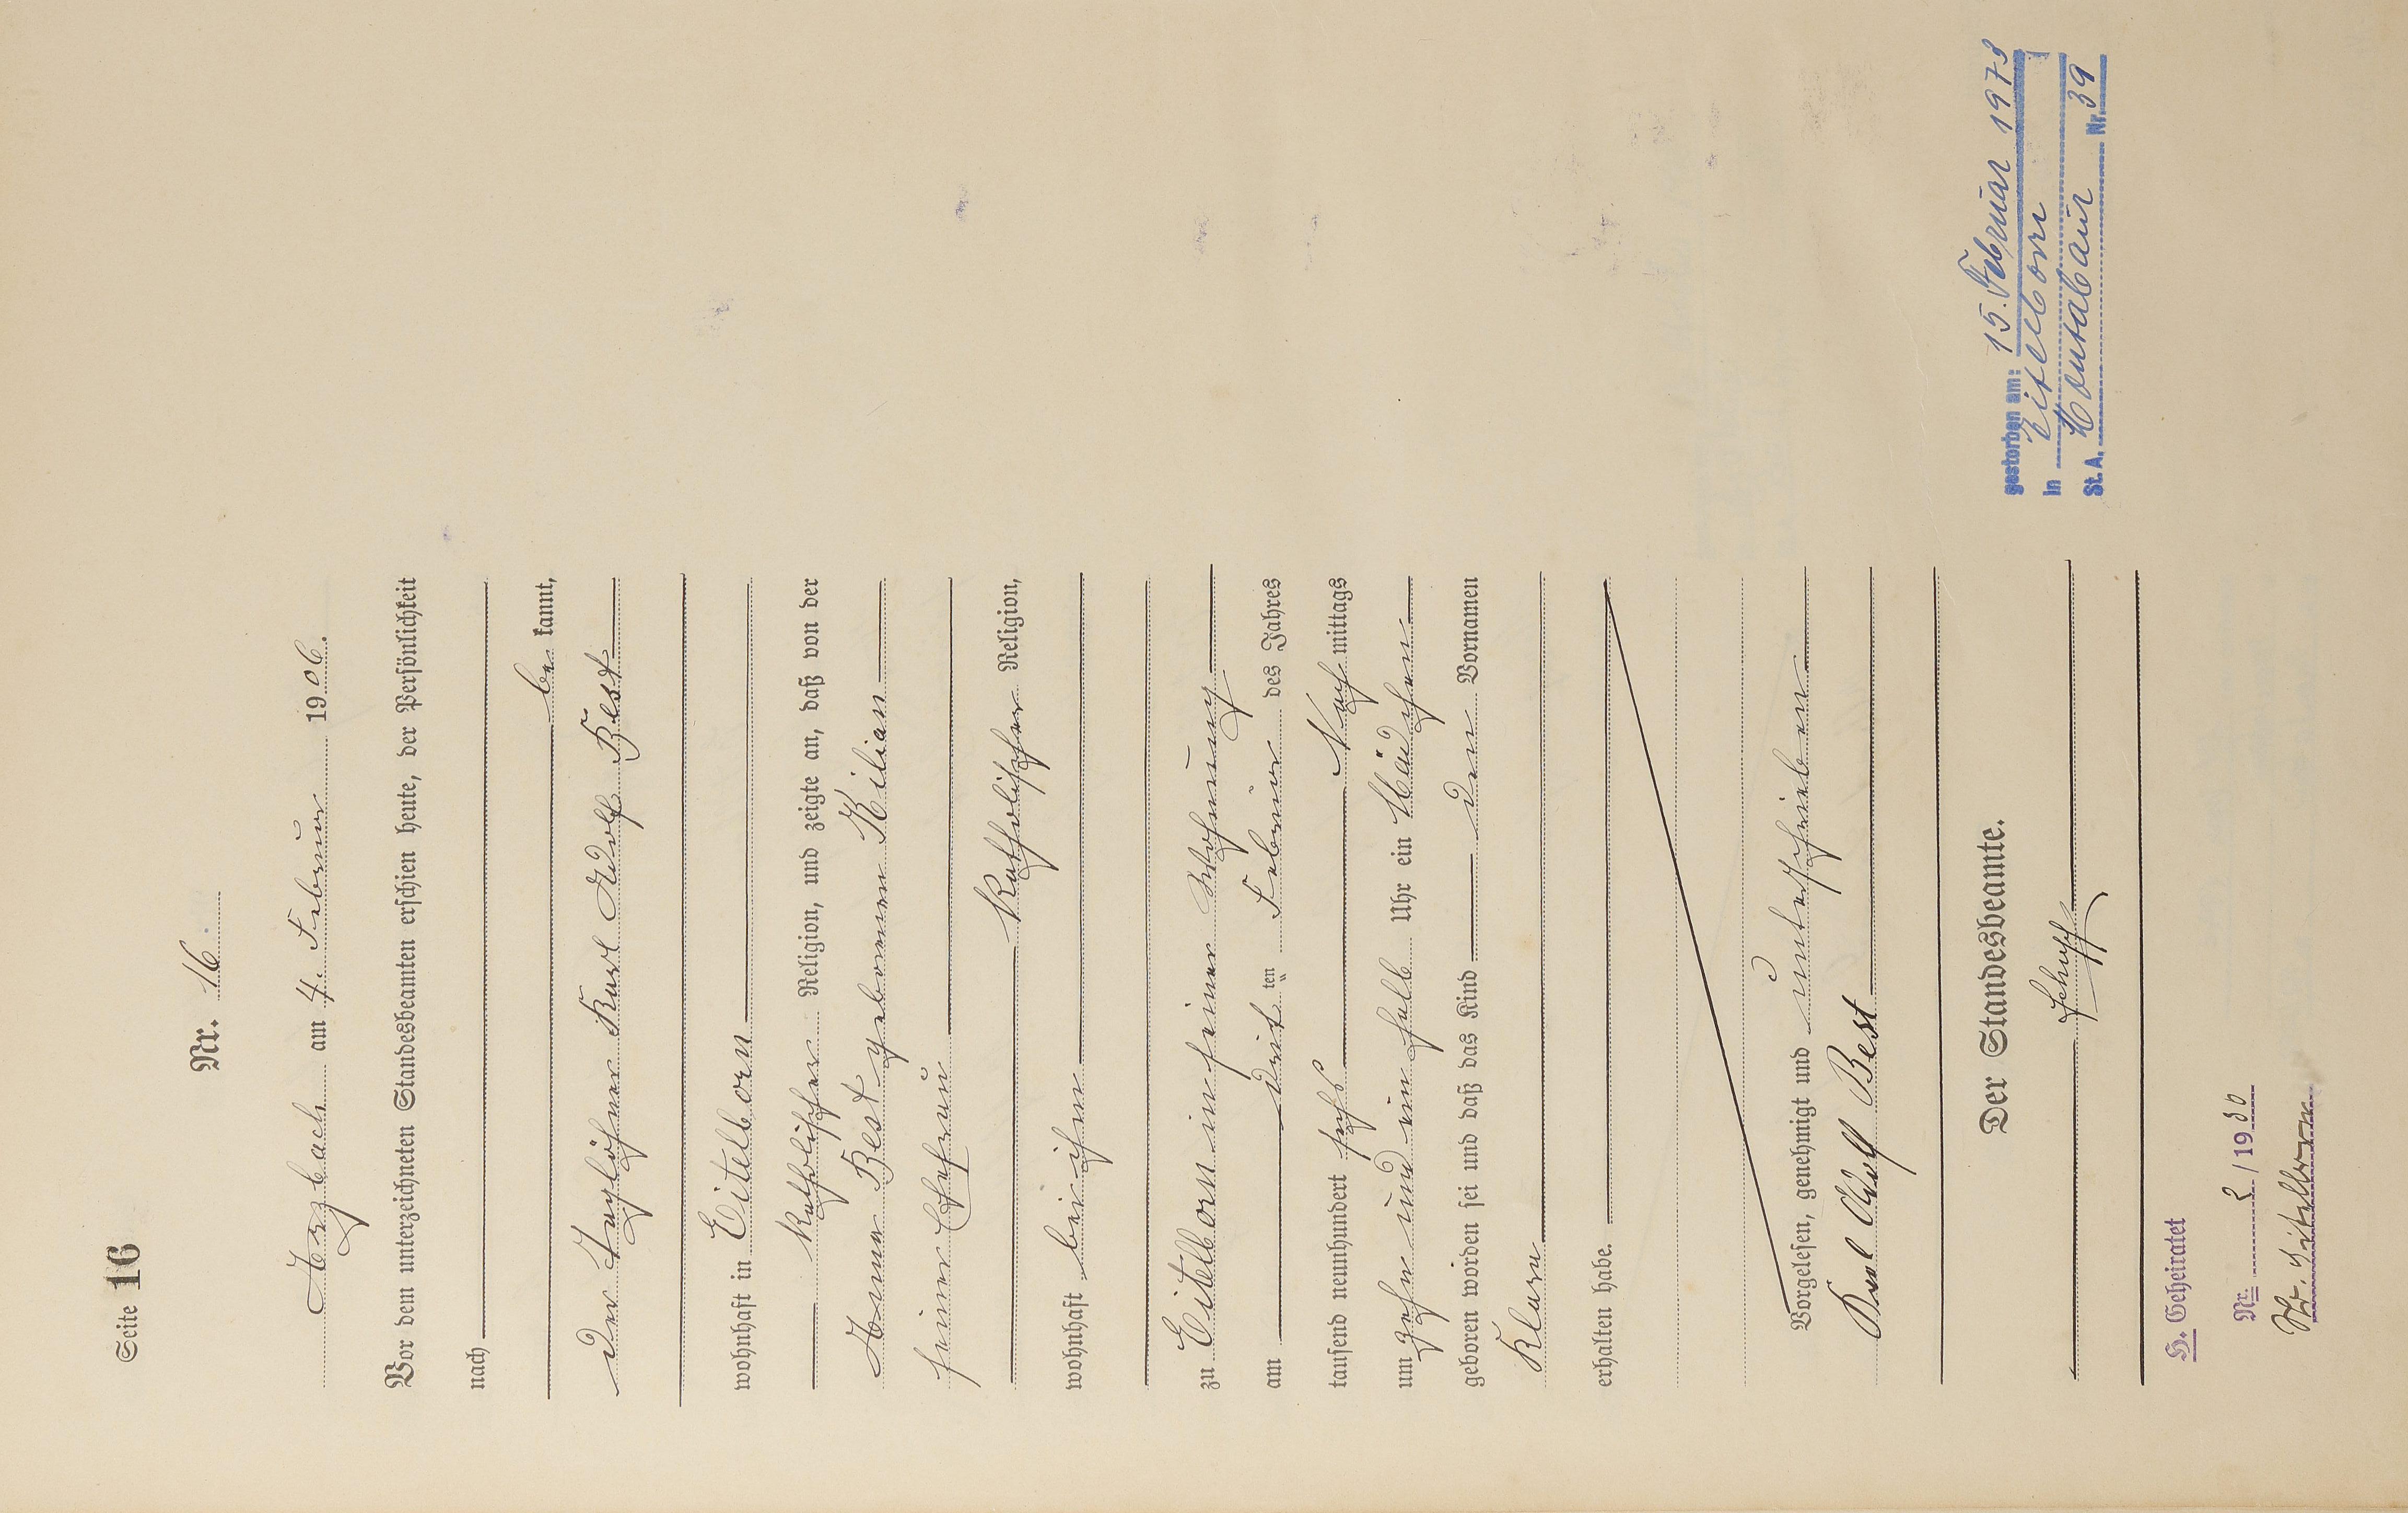 Seite 16
Nr. 16
Arzbach am 4. Februar 1906.
Vor dem unterzeichneten Standesbeamten erschien heute, der Persönlichkeit
nach
be kannt,
der Taglöhner Karl Adolf Best
wohnhaft in Eitelborn
katholischer Religion, und zeigte an, daß von der
Anna Best geborenen Kilian
seiner Ehefrau
katholischer Religion,
wohnhaft bei ihm
zu Eitelborn in seiner Wohnung
am dritten Februar des Jahres
tausend neunhundert sechs Nachmittags
um zehn und ein halb Uhr ein Mädchen
geboren worden sei und daß das Kind den Vornamen
Klara
erhalten habe.
Vorgelesen, genehmigt und unterschrieben
Karl Adolf Best
Der Standesbeamte.
gestorben am: 15. Februar 1973
in Eitelborn
St. A. Montabaur Nr. 39
H. Geheiratet
Nr. 2 / 1930
St. Eitelborn